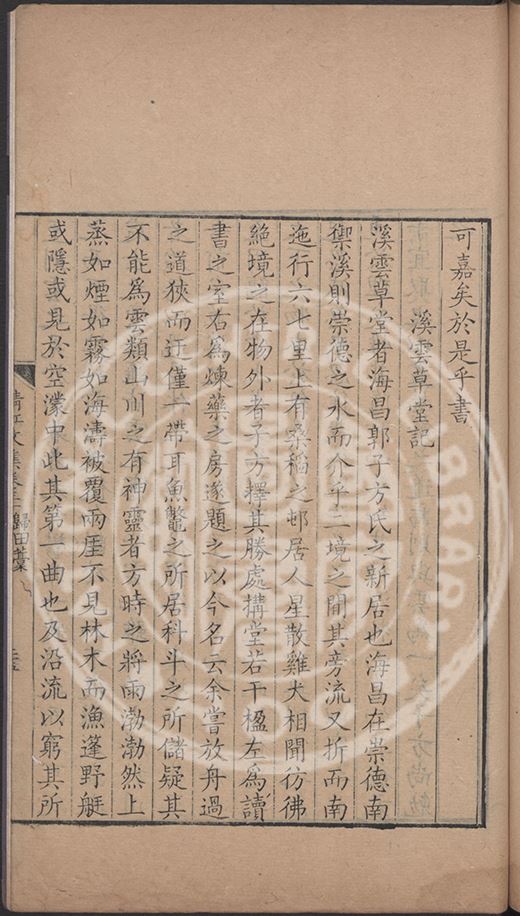 可嘉矣於是乎書
溪雲草堂記
溪雲草堂者海昌郭子方氏之新居也海昌在崇德南
禦溪則崇德之水而介乎二境之間其旁流又折而南
迤行六七里上有桑稻之邨居人星散雞犬相聞彷彿
絕境之在物外者子方擇其勝處構堂若干楹左為讀
書之室右為煉藥之房遂題之以今名云余嘗放舟過
之道狹而迂僅一帶耳魚鼈之所居科斗之所儲疑其
不能為雲類山川之有神靈者方時之將雨渤渤然上
蒸如煙如霧如海濤被覆兩厓不見林木而漁蓬野艇
或隱或見於空濛中此其第一曲也及沿流以窮其所
清江文集卷 歸田藁